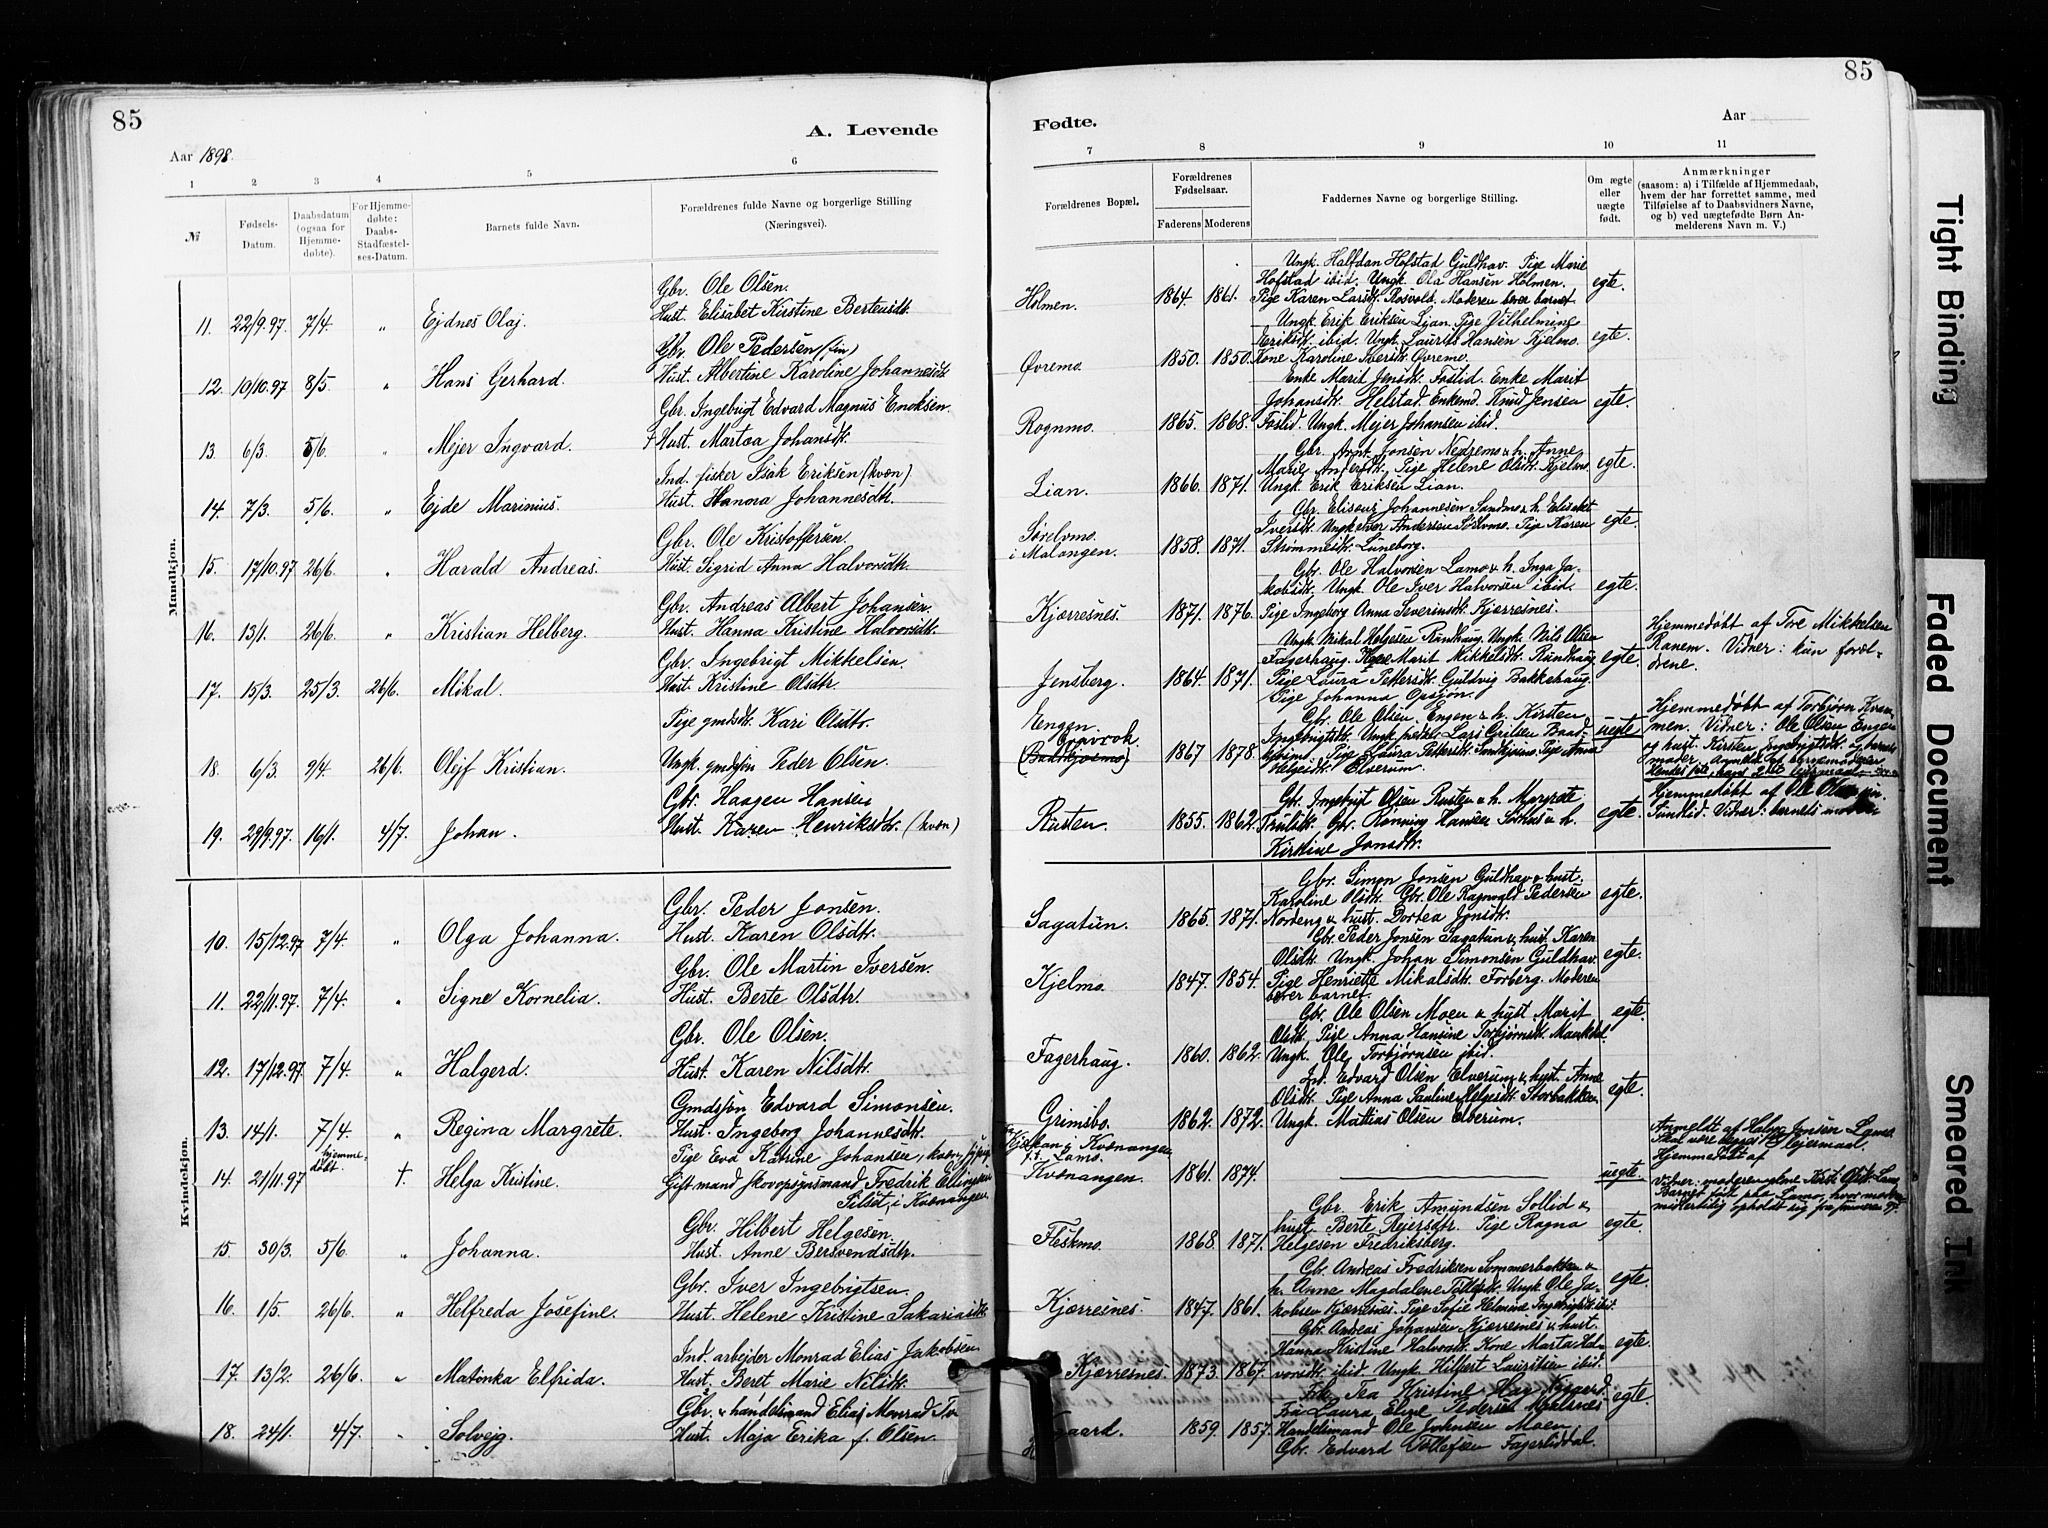 85
A. Levende
Aar 1898.
1 2 3 4 5 6
№
Fødsels-Datum.
Daabsdatum (ogsaa for Hjemmedøbte).
For Hjemmedøbte: Daabs-Stadfæstelses-Datum.
Barnets fulde Navn.
Forældrenes fulde Navne og borgerlige Stilling (Næringsvei).
Mandkjøn.
Gbr. Ole Olsen.
11. 22/9.97. 7/4. „ Ejdnes Olaj. Hust. Elisabet Kirstine Bertensdtr.
Gbr. Ole Pedersen (fin)
12. 10/10.97 8/5. „ Hans Gerhard. Hust. Albertine Karoline Johannesdtr
Gbr. Ingebrigt Edvard Magnus Enoksen.
13. 6/3. 5/6. „ Mejer Ingvard. Hust. Martea Johansdtr.
Ind. fisker Isak Eriksen (kvæn)
14. 7/3. 5/6. „ Ejde Marinius. Hust. Hanora Johannesdtr.
Gbr. Ole Kristoffersen.
15. 17/10.97 26/6. „ Harald Andreas. Hust. Sigrid Anna Halvorsdtr.
Gbr. Andreas Albert Johansen.
16. 13/1. 26/6. „ Kristian Helberg. Hust. Hanna Kristine Halvorsdtr.
Gbr. Ingebrigt Mikkelsen.
17. 15/3. 25/3. 26/6. Mikal. Hust. Kristine Olsdtr.
Pige gmdsdtr. Kari Olsdtr.
18. 6/3. 9/4. 26/6. Olejf Kristian. Ungk. gmdssøn Peder Olsen.
Gbr. Haagen Hansen
19. 29/9.97. 16/1. 4/7. Johan. Hust. Karen Henriksdtr. (kvæn)
Kvindekjøn.
Gbr. Peder Jonsen.
10. 15/12.97 7/4. „ Olga Johanna. Hust. Karen Olsdtr.
Gbr. Ole Martin Iversen.
11. 22/11.97. 7/4. „ Signe Kornelia. Hust. Berte Olsdtr.
Gbr. Ole Olsen.
12. 17/12.97 7/4. „ Halgerd. Hust. Karen Nilsdtr.
Gmdssøn Edvard Simonsen.
13. 14/1. 7/4. „ Regina Margrete. Hust. Ingeborg Johannesdtr.
hjemmedøbt. Pige Eva Katrine Johansen, kvæn,
14. 21/11.97 † Helga Kristine. Gift mand skovopsynsmand Fredrik Ellingsen
i Kvænangen
Gbr. Hilbert Helgesen.
15. 30/3. 5/6. „ Johanna. Hust. Anne Bersvendsdtr.
Gbr. Iver Ingebrigtsen.
16. 1/5. 26/6. „ Helfreda Josefine. Hust. Helene Kristine Sakariasdtr
Ind. arbejder Monrad Elias Jakobsen
17. 13/2. 26/6. „ Matinka Elfrida. Hust. Beret Marie Nilsdtr.
Gbr. & handelsmand Elias Monrad
18. 24/1. 4/7. „ Solvejg. Hust. Maja Erika f. Olsen.
85
Fødte.
Aar
7 8 9 10 11
Forældrenes Bopæl.
Forældrenes Fødselsaar.
Faderens Moderens
Faddernes Navne og borgerlige Stilling.
Om ægte eller uægte født.
Anmærkninger
(saasom: a) i Tilfælde af Hjemmedaab,
hvem der har forrettet samme, med
Tilføielse af to Daabsvidners Navne,
og b) ved uægtefødte Børn Anmelderens Navn m. V.)
Ungk. Halfdan Hofstad Guldhav. Pige Marie
Hofstad ibid. Ungk. Ola Hansen Holmen. egte.
Holmen. 1864. 1861. Pige Karen Larsdtr. Rosvold. Moderen bærer barnet.
Ungk. Erik Eriksen Lian. Pige Vilhelmine
Eriksdtr. ibid. Ungk. Laurits Hansen Kjelmo. egte.
Øvremo. 1850. 1850. Kone Karoline Iversdtr. Øvremo.
Enke Marit Jensdtr. Foslid. Enke Marit
Johansdtr. Helstad. Enkemd. Knud Jensen egte.
Rognmo. 1865. 1868. Foslid. Ungk. Mejer Johansen ibid.
Gbr. Arnt Jonsen Nedremo & h. Anne
Marie Andersdtr. Pige Helene Olsdtr. Kjelmo. egte.
Lian. 1866. 1871. Ungk. Erik Eriksen Lian.
Gbr. Eliseus Johannesen Sandmo & h. Elisabet
Iversdtr. Ungk. Iver Andersen Sørelvmo. Pige Karen egte.
Sørelvmo i Malangen. 1858. 1871. Luneborg.
Gbr. Ole Halvorsen Lamo & h. Inga Jakobsdtr. Ungk. Ole Iver Halvorsen ibid. egte.
Kjærresnes. 1871. 1876. Pige Ingeborg Anna Severinsdtr. Kjærresnes.
Ungk. Mikal Helgesen Rundhaug. Ungk. Nils Olsen
Fagerhaug. Pige Marit Mikkelsdtr. Rundhaug egte.
Jensberg. 1864. 1871. Pige Laura Pettersdtr. Guldvig Bakkehaug.
Pige Johanna Opsjøn.
Hjemmedøbt af Tore Mikkelsen
Ranem. Vidner: kun forældrene.
Gbr. Ole Olsen Engen & h. Kirsten
Engen uegte
(Bakkjosmo) 1867 1878.
Elverum.
Hjemmedøbt af Torbjørn Kvammen. Vidner: Ole Olsen Engen
og hust. Kirsten Ingebrigtsdtr. og barnets
moder. Anmeldt af barnemoderen
Gbr. Ingebrigt Olsen Rusten & h. Margrete
Rusten. 1855. 1862. Trulsdtr. Gbr. Rønning Hansen & h. egte.
Kirstine Jonsdtr.
Hjemmedøbt af Ole Olsen
Sundlid. Vidner: barnets moder
Gbr. Simon Jonsen Guldhav & hust.
Karoline Olsdtr. Gbr. Ole Ragnvald Pedersen egte.
Sagatun. 1865. 1871. Nordeng & hust. Dortea Jonsdtr.
Gbr. Peder Jonsen Sagatun & hust. Karen
Olsdtr. Ungk. Johan Simonsen Guldhav. egte.
Kjelmo. 1847. 1854. Pige Henriette Mikalsdtr. Forberg. Moderen
bærer barnet.
Gbr. Ole Olsen Moen & hust. Marit egte.
Olsdtr. Pige Anna Hansine Torbjørnsdtr. Maukdal
Fagerhaug. 1860. 1862. Ungk. Ole Torbjørnsen ibid.
Ind. Edvard Olsen Elverum & hust. Anne
Olsdtr. Pige Anna Pauline Helgesdtr. Storbakken. egte.
Grimsbo. 1862. 1872. Ungk. Mattias Olsen Elverum.
i Kvænangen f. t. Lamo.
Kvænangen. 1861. 1874. uegte
Anmeldt af Halvor Jonsen Lamo.
Skal være begges 1ste lejermaal.
Hjemmedøbt af
Barnet født paa Lamo, hvor moderen
midlertidig opholdt sig
Gbr. Erik Amundsen Sollid &
hust. Berte Rejersdtr. Pige Ragna egte.
Fleskmo. 1868. 1871. Helgesen Fredriksberg.
Gbr. Andreas Fredriksen Sommerbakken &
h. Anne Magdalene Tollefsdtr. Ungk. Ole Jakobsen Kjærresnes. Pige Sofie Helmine Ingebrigtsdtr. ibid. egte.
Kjærresnes. 1847. 1861.
Gbr. Andreas Johansen Kjærresnes & hust.
Hanna Kristine Halvorsdtr. Kone Marta Halvorsdtr. ibid. Ungk. Hilbert Lauritsen ibid. egte.
Kjærresnes. 1873. 1867.
Frk. Tea Kristine Hag
Fru Laura Eline Pedersen Maalsnes egte.
1859. 1857. Handelsmand Ole Johnsen Moen
Gbr. Edvard Tollefsen Fagerliddal.
Tight Binding
Faded Document
Smeared Ink